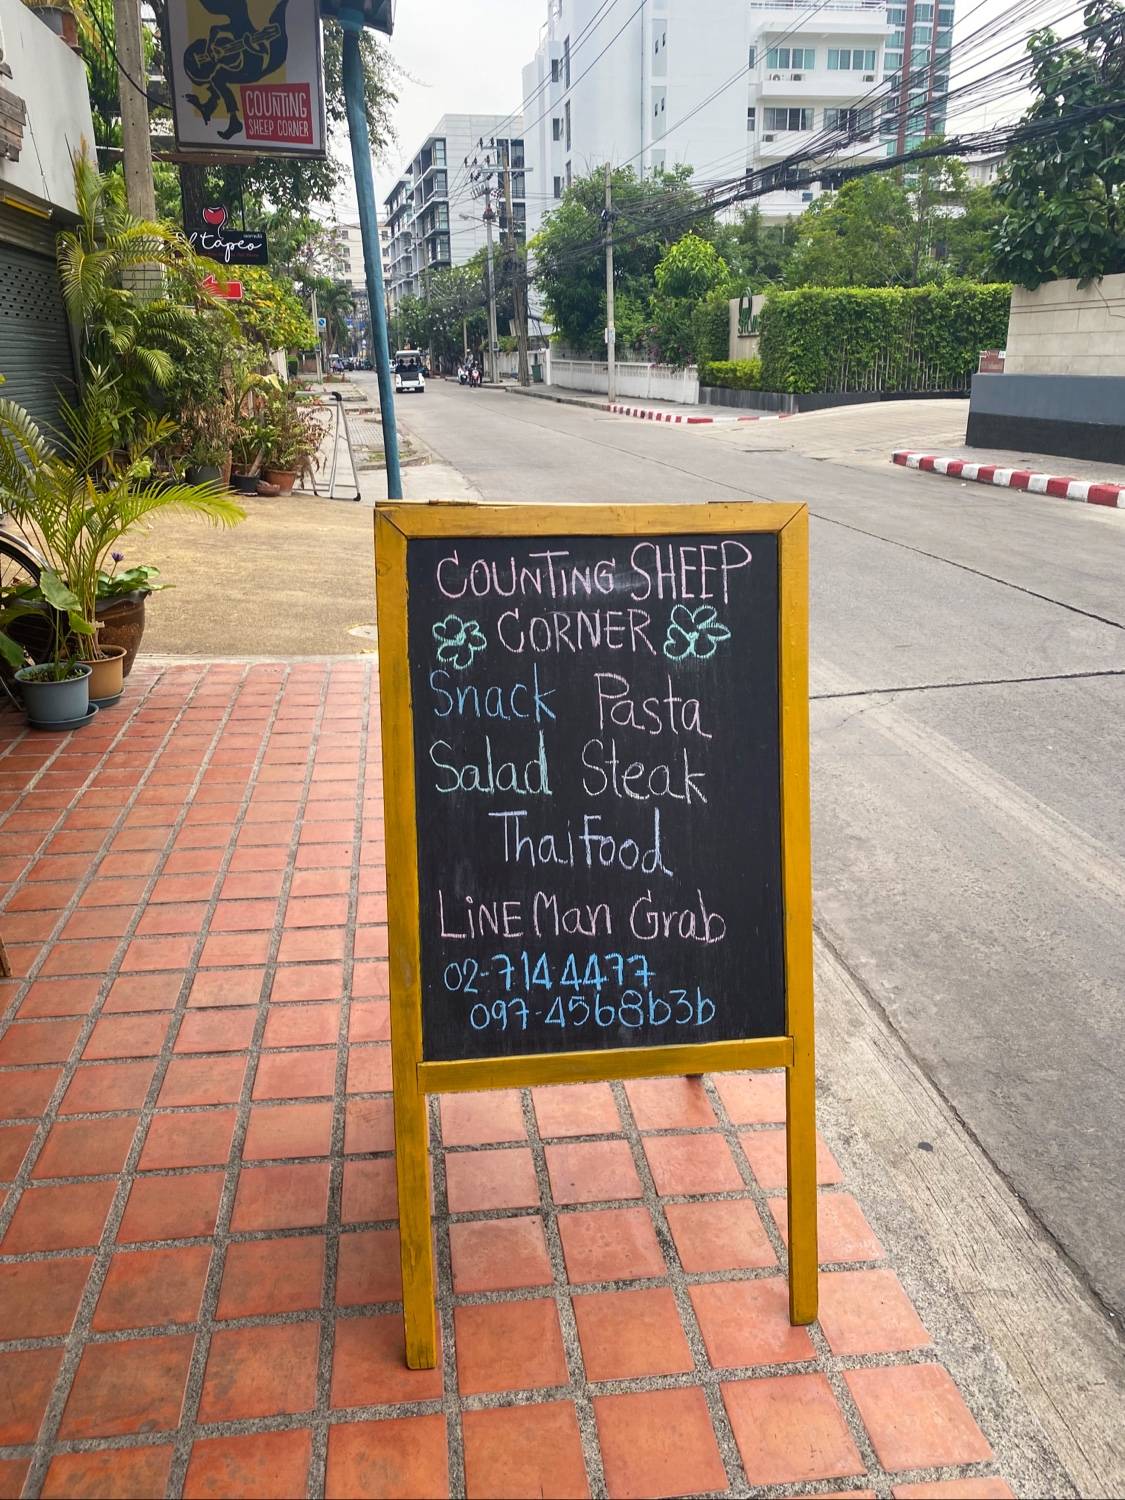 COUNTING
SHEEP CORNER
tapeo
COUNTING SHEEP
CORNER
Snack Pasta
Salad Steak
Thai Food
LiNE Man Grab
02-714 4477
097-4568636